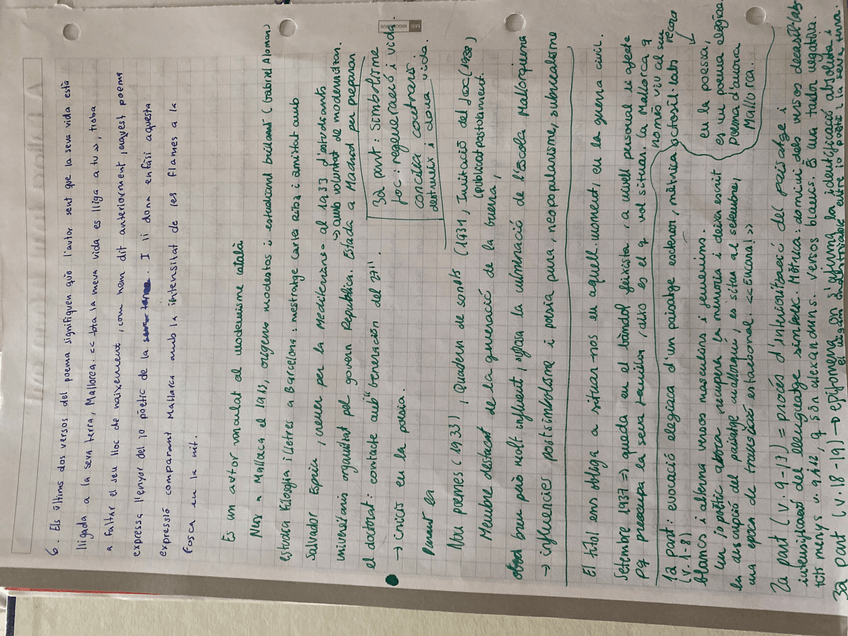 6. Els últims dos versos del poema signifiquen que l'autor sent que la seva vida està
lligada a la seva terra, Mallorca. << tota la meva vida es lliga a tu >>, troba
a faltar el seu lloc de naixement, com hem dit anteriorment, aquest poema
expressa l'enyor del jo poètic de la . I li dona enfàsi aquesta
expressió comparant Mallorca amb la intensitat de les flames a la
fosca en la nit.
És un autor vinculat al modernisme català
Neix a Mallorca el 1913, orígens modestos i estudiant brillant (Gabriel Alomar)
Estudia Filosofia i Lletres a Barcelona: mestratge Carles Riba i amistat amb
Salvador Espriu, creuer per la Mediterrània al 1933 d'estudiants
universitaris organitzat pel govern República. Estada a Madrid per preparar
→ amb voluntat de modernitzar.
el doctorat: contacte amb "Generación del 27"
→ Inicis en la poesia.
3a part: Simbolisme
foc: regeneració i vida.
concilia contraris
destrueix i dona vida.
Durant la
Nou poemes (1933), Quaderns de sonets (1937), Imitació del foc (1938)
(publicat pòstumament.
Membre destacat de la generació de la Guerra,
obra breu però molt influent, culminació de l'Escola Mallorquina
→ influències postsimbolisme i poesia pura, neopopularisme, subrealisme
El títol ens obliga a situar-nos en aquell moment, en la guerra civil.
Setembre 1937 => queda en el bàndol feixista, a nivell personal li afecta
pq preocupa la seva família, això es el q vol situar. La Mallorca q
només viu al seu
record
1a part: evocació elegíaca d'un paisatge exterior, mètrica octosíl·labs
(v. 1-8)
blancs i alterna versos masculins i femenins.
en la poesia,
és un poema elegíac
Poema d'enyora
Mallorca.
Un jo poètic evoca, recupera la memòria i deixa escrit
la descripció del paisatge mallorquí, es situa al setembre,
una època de transició estacional. << Encara! >>
2a part (v. 9-17) = procés d'interiorització del paisatge i
intensificació del llenguatge simbòlic. Mètrica: domini dels versos decasíl·labs
tots menys v. 9 i 12, q són alexandrins. Versos blancs. És una tardor negativa.
3a part (v. 18-19) → epifonema, i afirma la identificació absoluta i
entre el poeta i la seva terra.